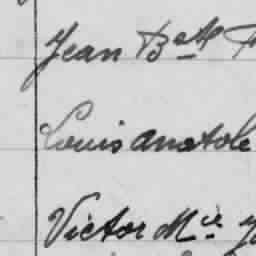 Jean Bste
Louis Anatole
Victor Mcie